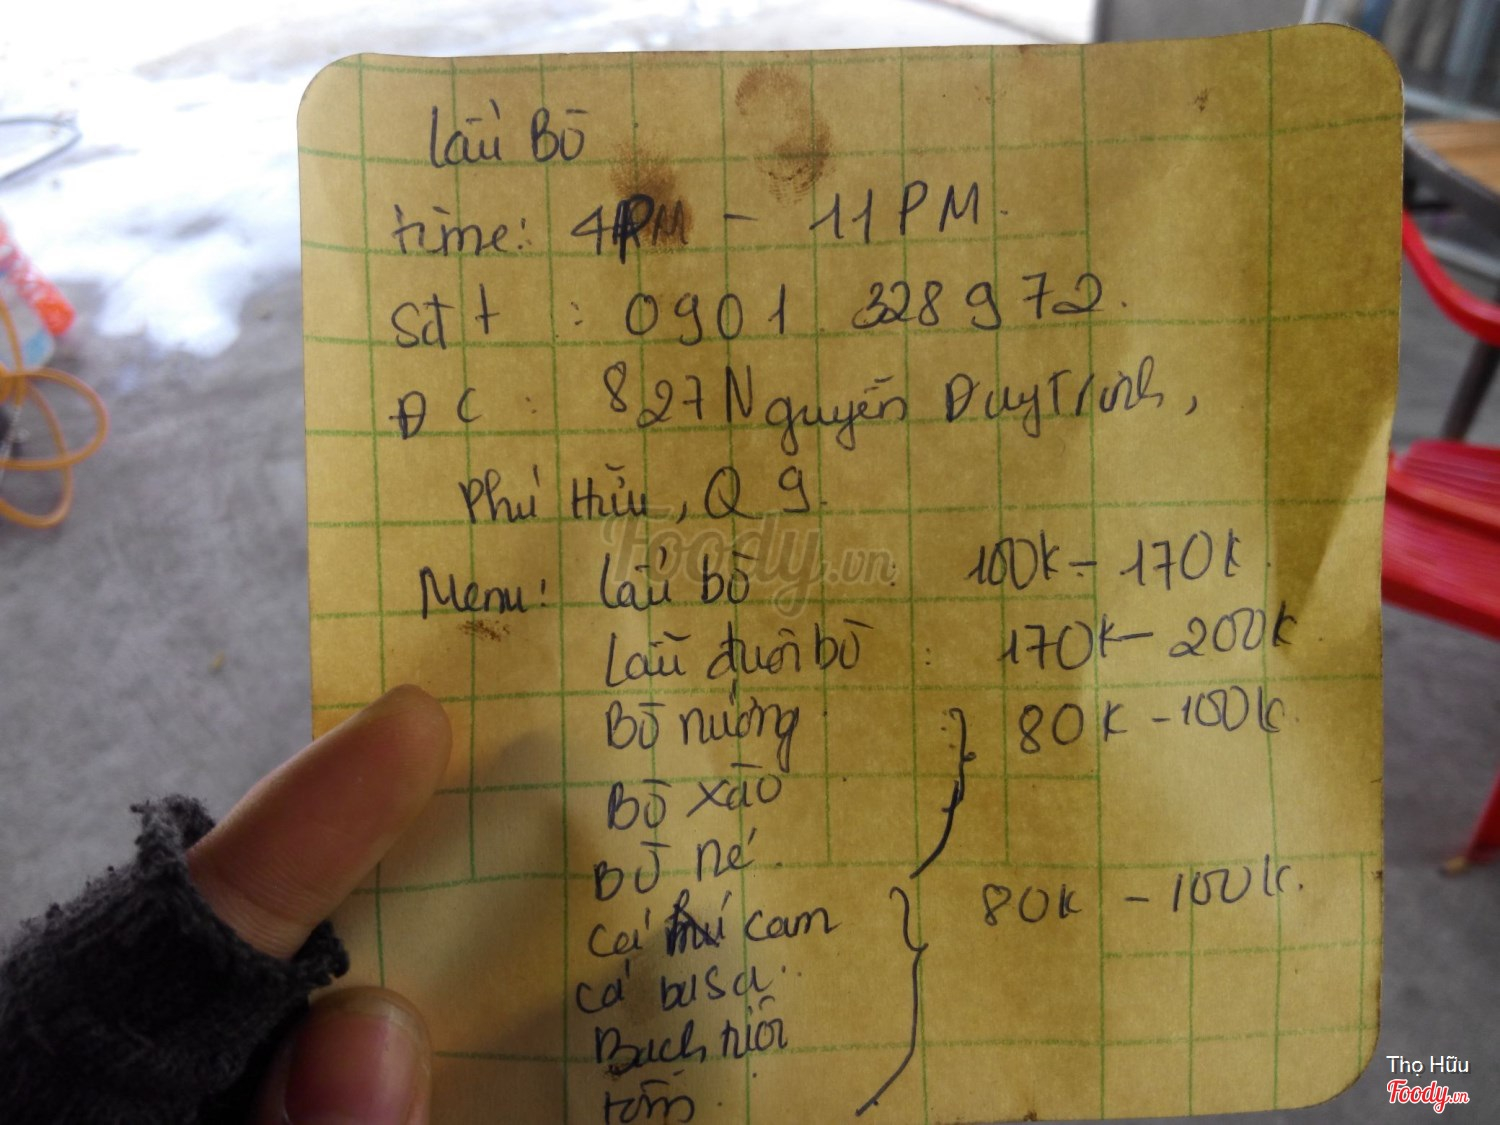 Lẩu Bò
time: 4PM - 11PM.
Sđt : 0901 328972.
ĐC : 827 Nguyễn Duy Trinh,
Phú Hữu, Q 9.
Menu: Lẩu bò : 100k - 170k.
Lẩu đuôi bò : 170k - 200k.
Bò nướng } 80k - 100k.
Bò xào
Bò né
Cá cam } 80k - 100k.
Cá basa
Bạch tuộc
tôm
Foody.vn
Thọ Hữu
Foody.vn